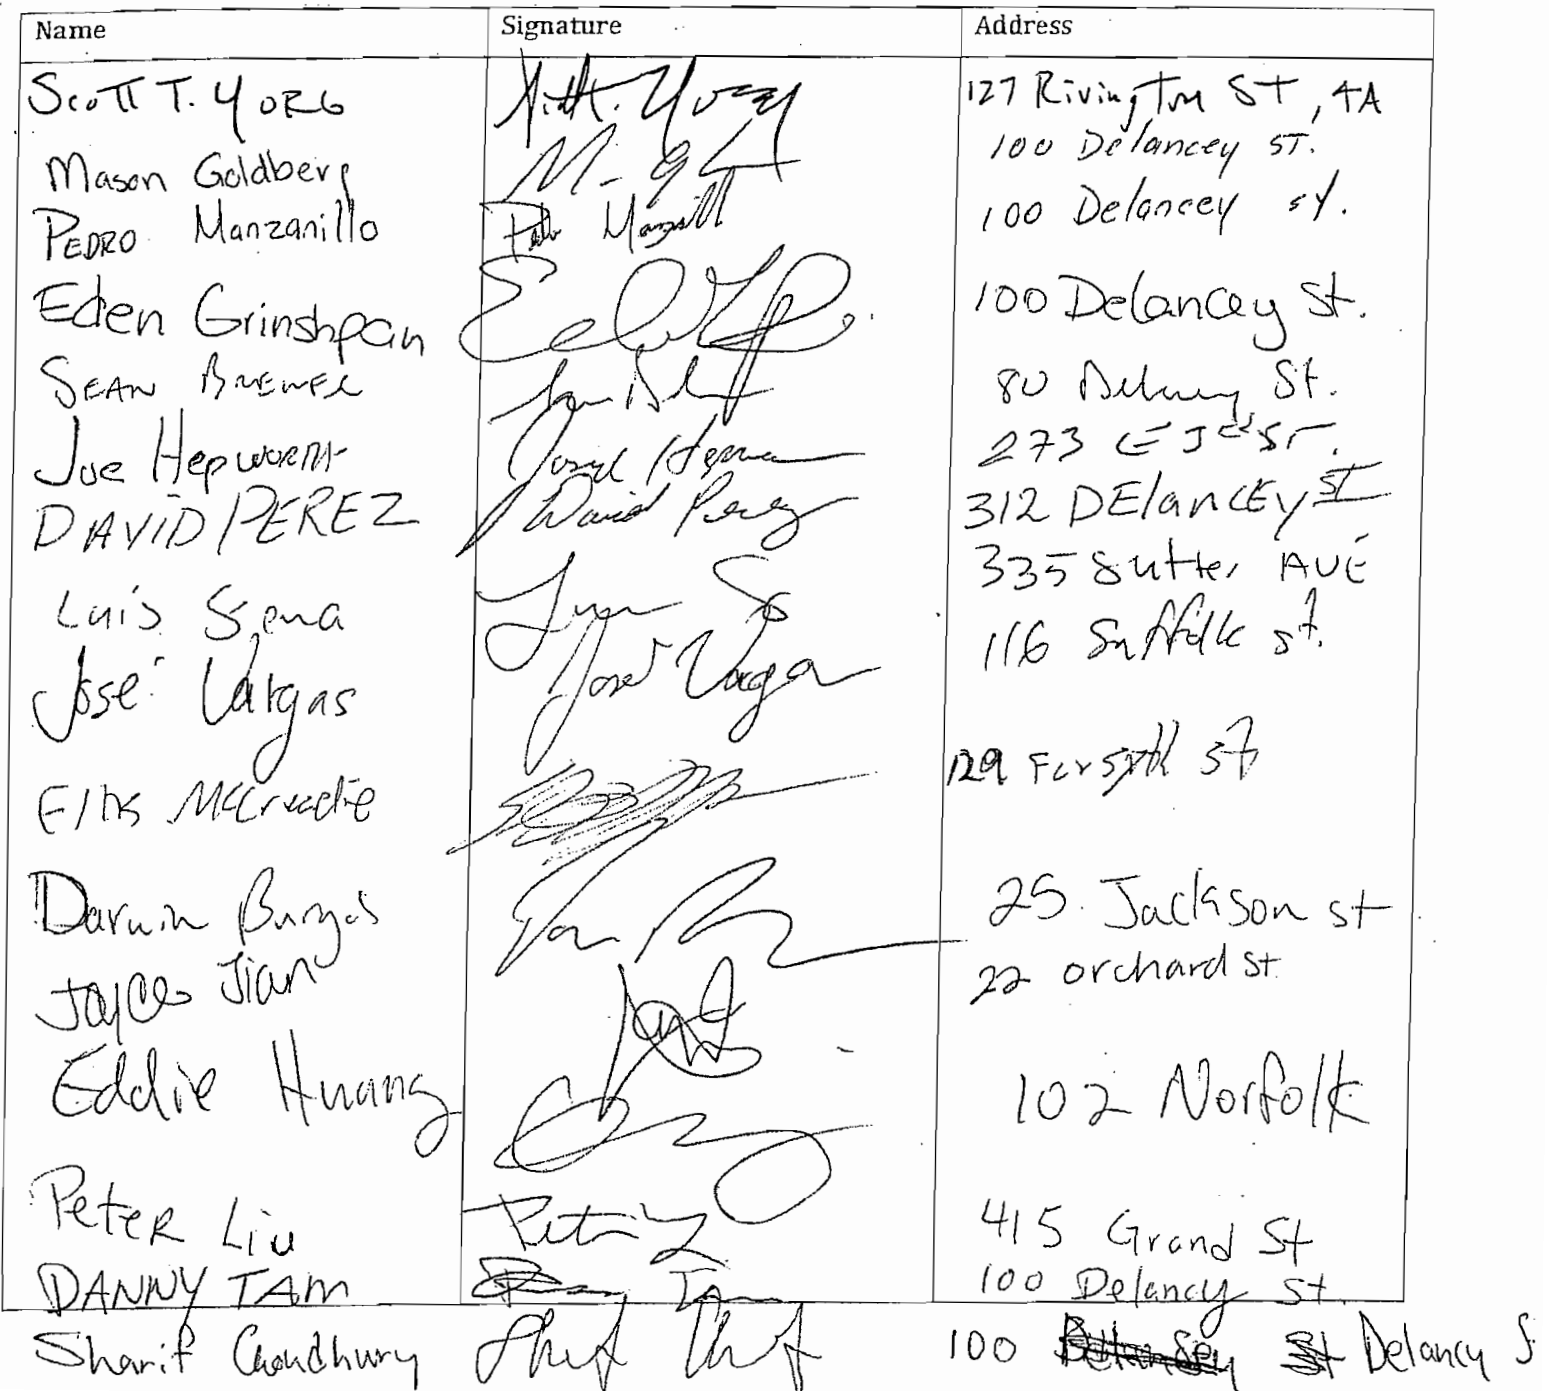 Name Signature Address
Scott T. York 127 Rivington St, 4A
Mason Goldberg M. G 100 Delancey ST.
PEDRO Manzanillo 100 Delancey st.
Eden Grinshpan 100 Delancey St.
SEAN BREWER 80 St.
Joe Hepworth 273
DAVID PEREZ David Perez 312 DElancEy ST
Luis Sena 335 Sutter AVE
José Vargas José Vargas 116 Suffolk st.
McCreadie 129 Forsyth st
Darwin Burgos 25 Jackson st
Joyce Jian 22 orchard st
Eddie Huang 102 Norfolk
PeteR Liu 415 Grand St
DANNY TAM 100 Delancy st.
Sharif Choudhury 100 Delancy S